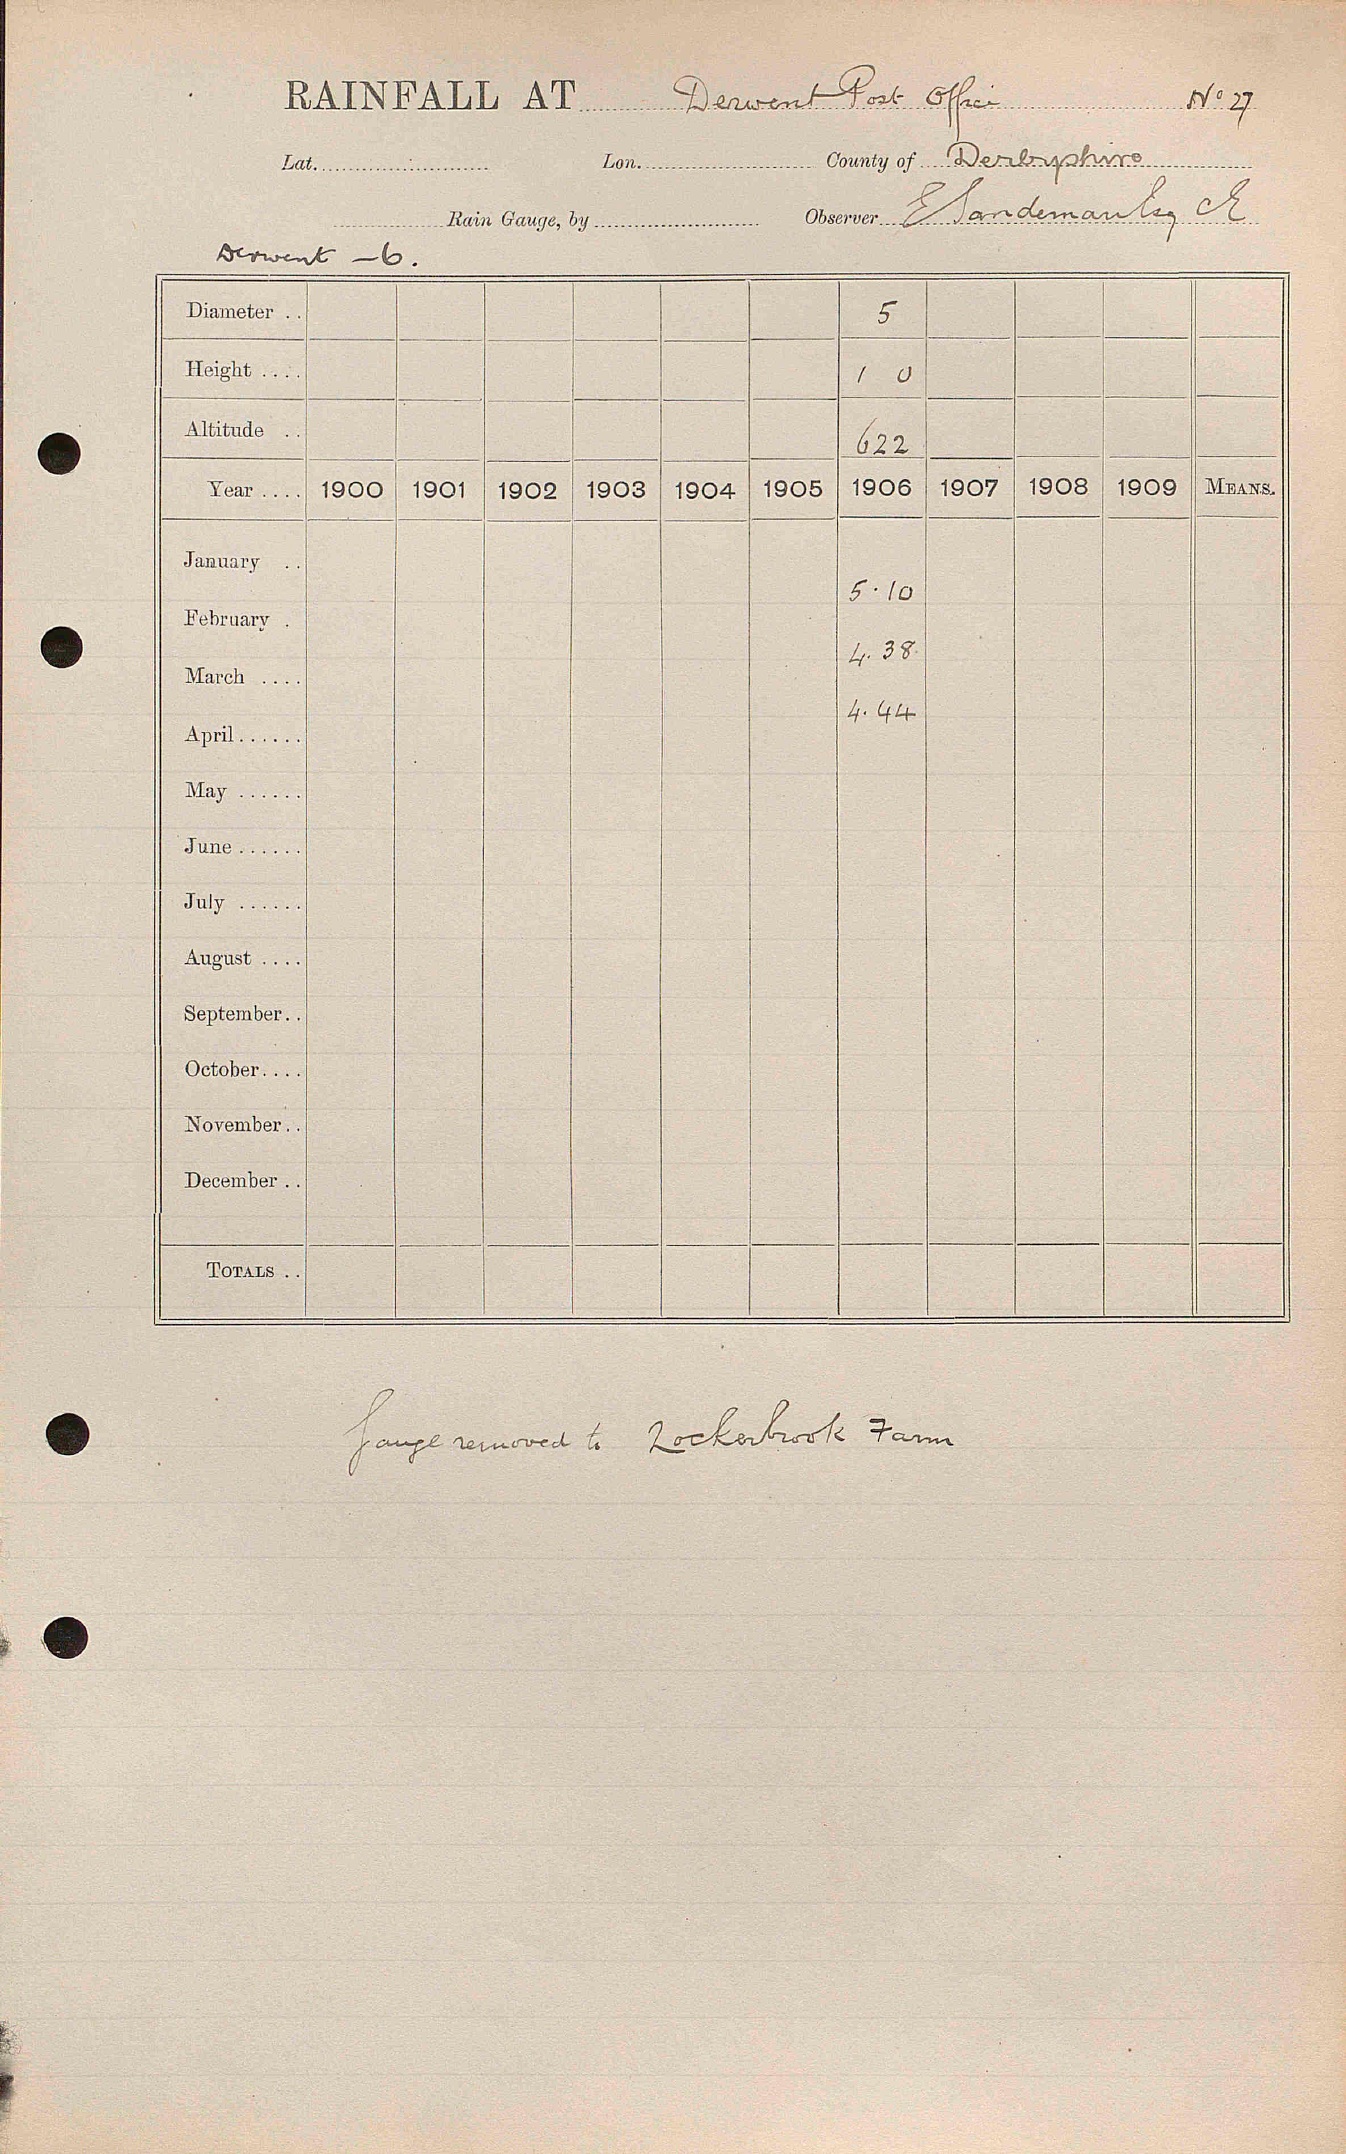 RAINFALL AT Derwent Post Office No 27
Lat. Lon. County of Derbyshire
Rain Gauge, by Observer E Sandeman Esq CE
Derwent - 6.
Diameter .. 5
Height .... 1 0
Altitude .. 622
Year .... 1900 1901 1902 1903 1904 1905 1906 1907 1908 1909 MEANS.
January ..
5.10
February .
4.38
March ....
4.44
April......
May ......
June ......
July ......
August ....
September..
October....
November..
December ..
TOTALS ..
Gauge removed to Lockerbrook Farm